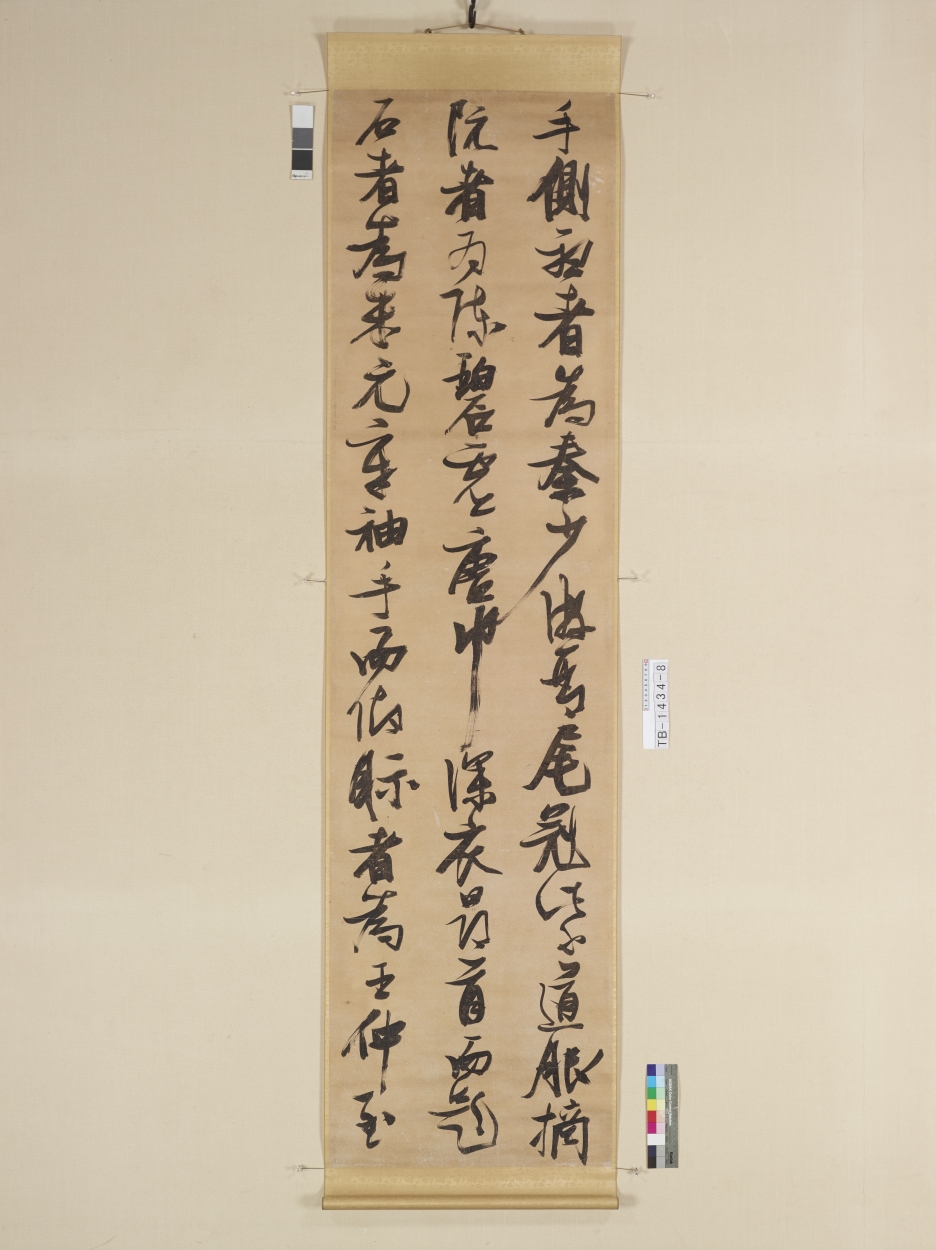 手側聽者為秦少游琴尾冠紫道服摘
阮者為陳碧虛唐巾深衣昂首而題
石者為米元章袖手而仰眎者為王仲至
TB-1434-8